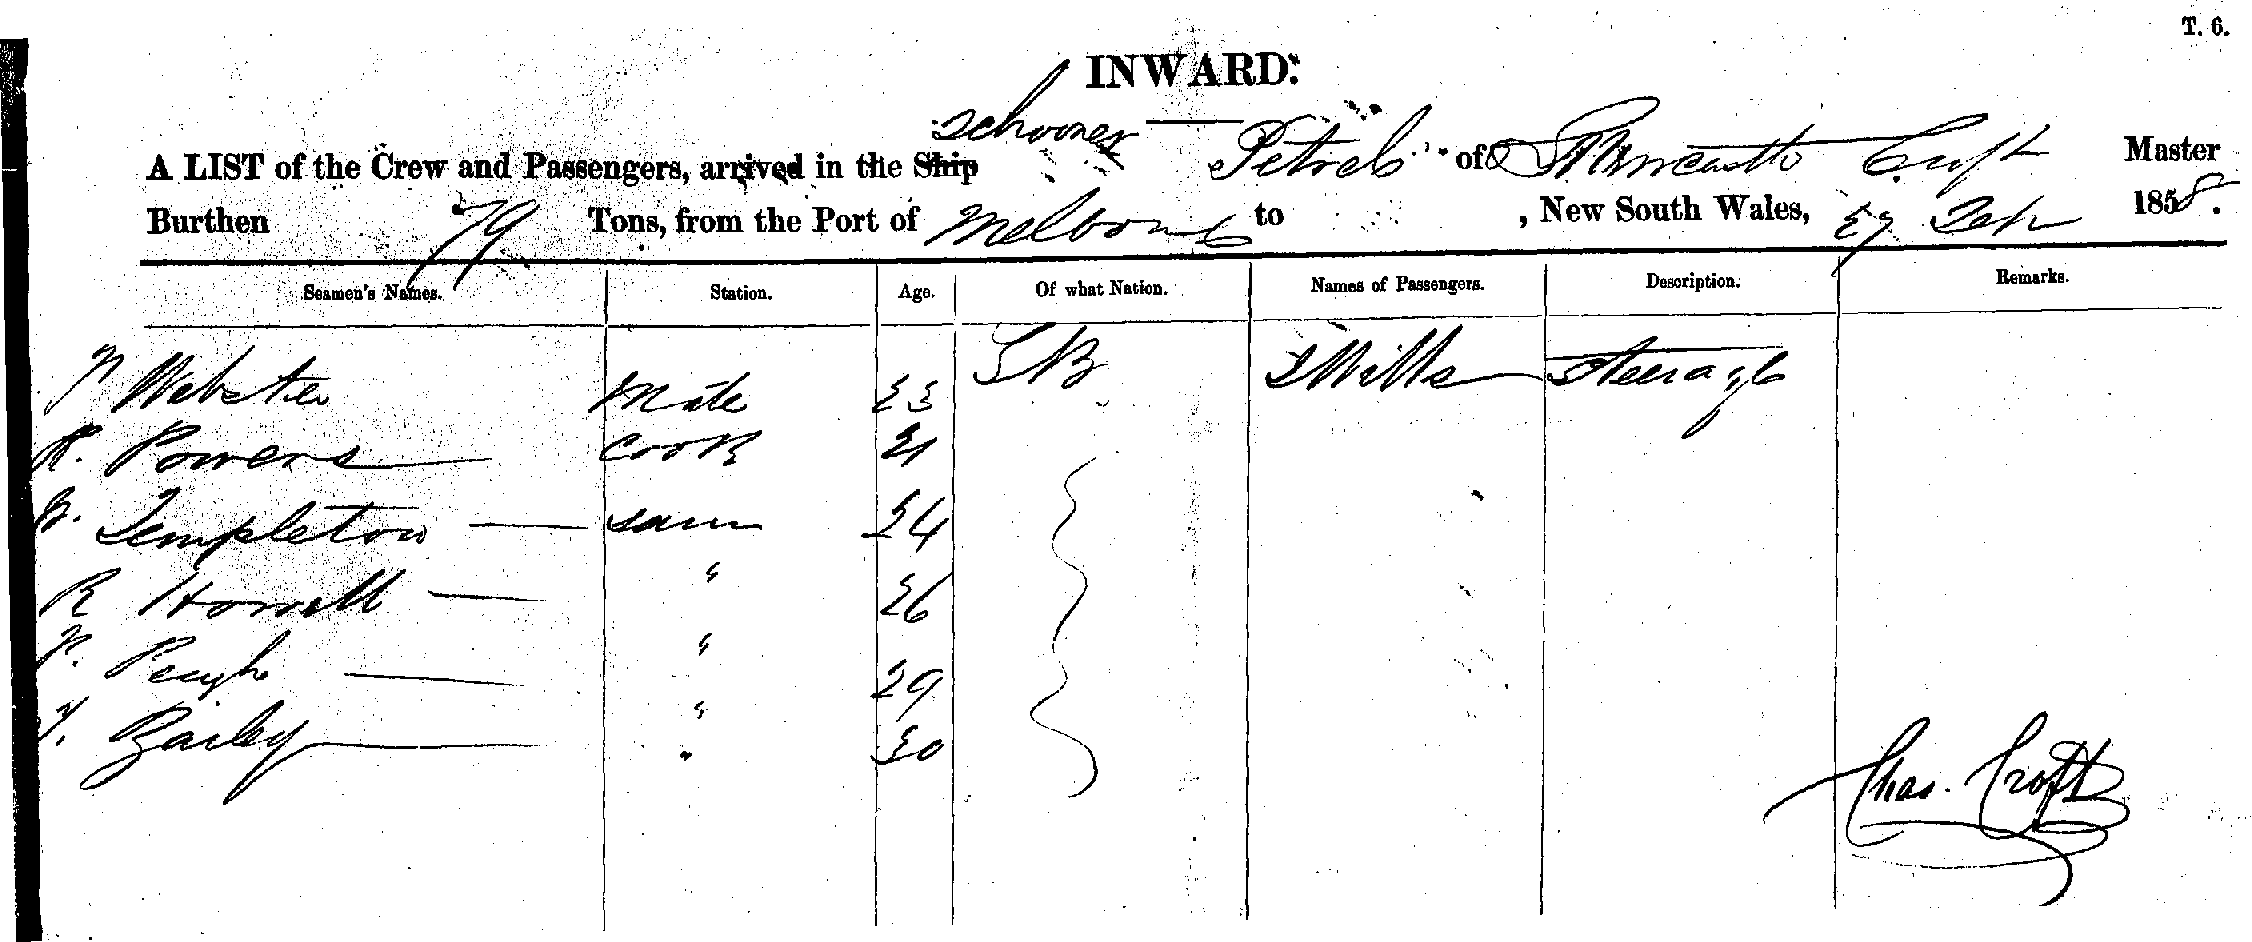 T. 6.
INWARD.
schooner
A LIST of the Crew and Passengers, arrived in the Ship Petrel of Croft Master
Burthen 79 Tons, from the Port of Melbourne to , New South Wales, 27 Feb 1858.
Seamen's Names. Station. Age. Of what Nation. Names of Passengers. Description. Remarks.
Webster Mate 23 GB Wills Steerage
R. Powers Cook 21
Templeton seam 24
R Howell " 26
Peugh " 29
Bailey " 30
Chas. Croft